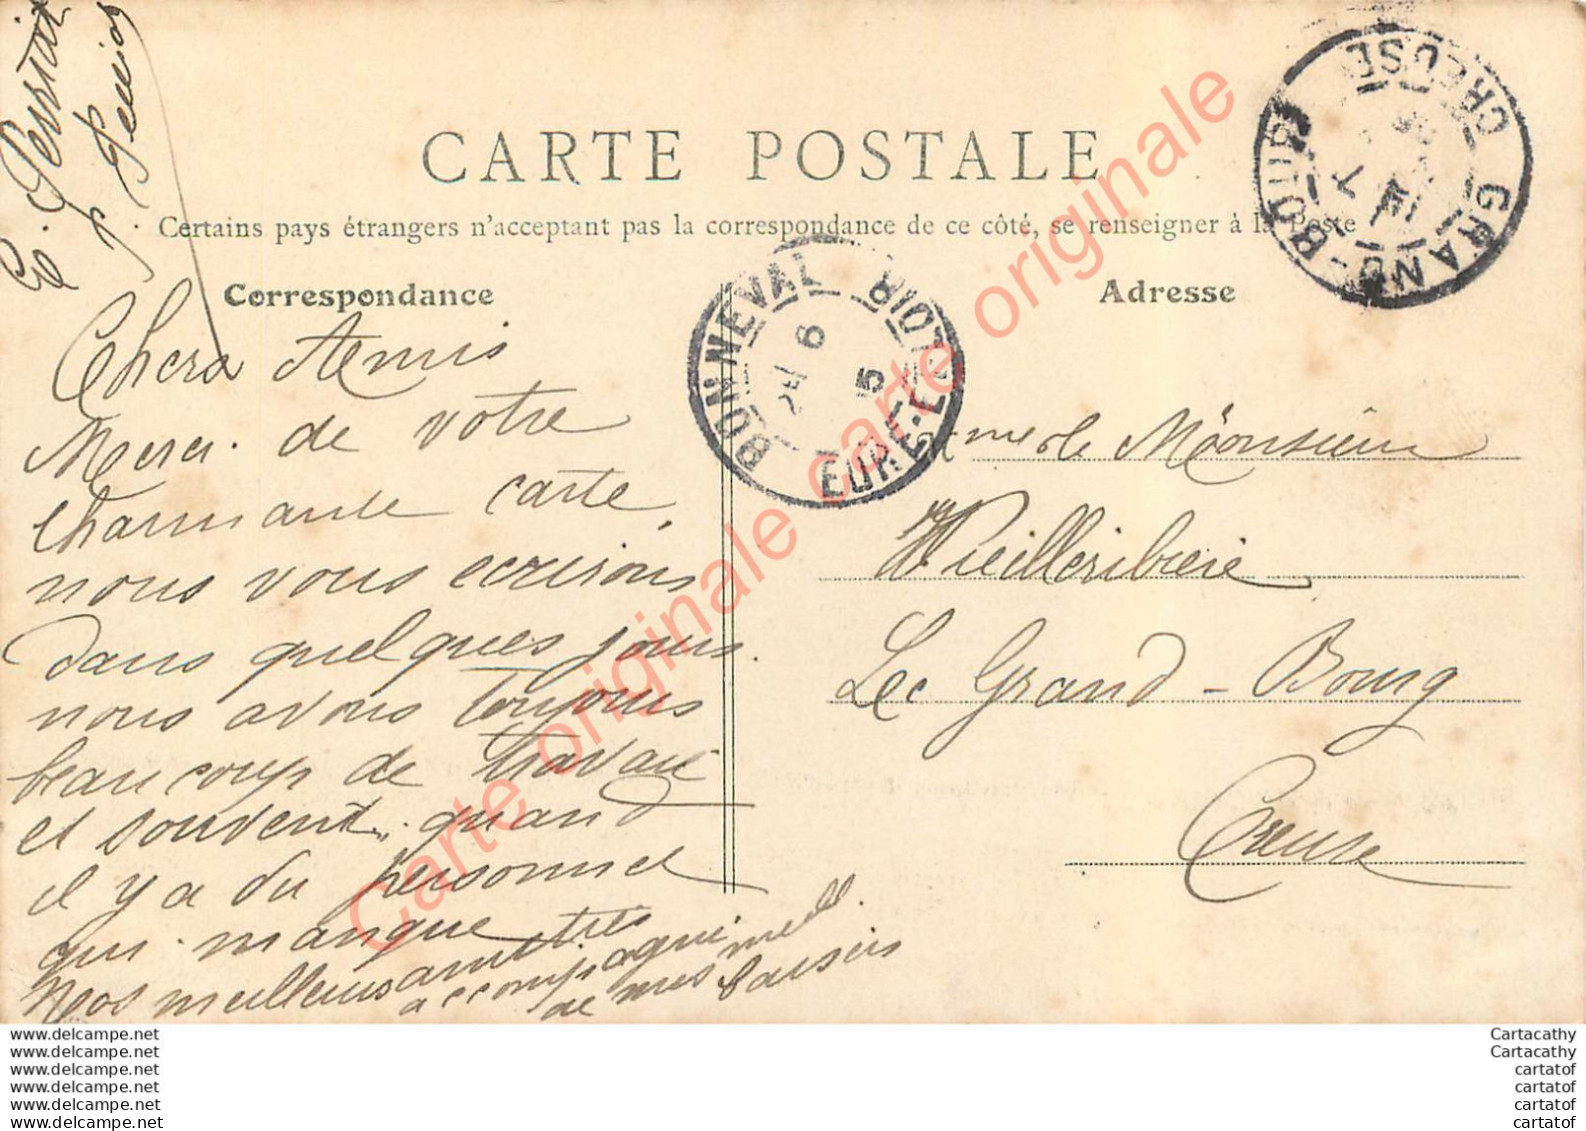 CARTE POSTALE
Certains pays étrangers n'acceptant pas la correspondance de ce côté, se renseigner à la Poste
Correspondance
Adresse
Chers Amis
Merci de votre
charmante carte,
nous vous écrirons
dans quelques jours
nous avons toujours
beaucoup de travail
et souvent quand
il y a du personnel
qui manque
Nos meilleurs amitiés
accompagné
de mes meill.
baisers
Monsieur
Vieilleribière
Le Grand-Bourg
Creuse
BONNEVAL
EURE-E
LOIR
6
5
GRAND-BOURG
CREUSE
7
Carte originale carte originale
www.delcampe.net
www.delcampe.net
www.delcampe.net
www.delcampe.net
www.delcampe.net
www.delcampe.net
Cartacathy
Cartacathy
cartatof
cartatof
cartatof
cartatof